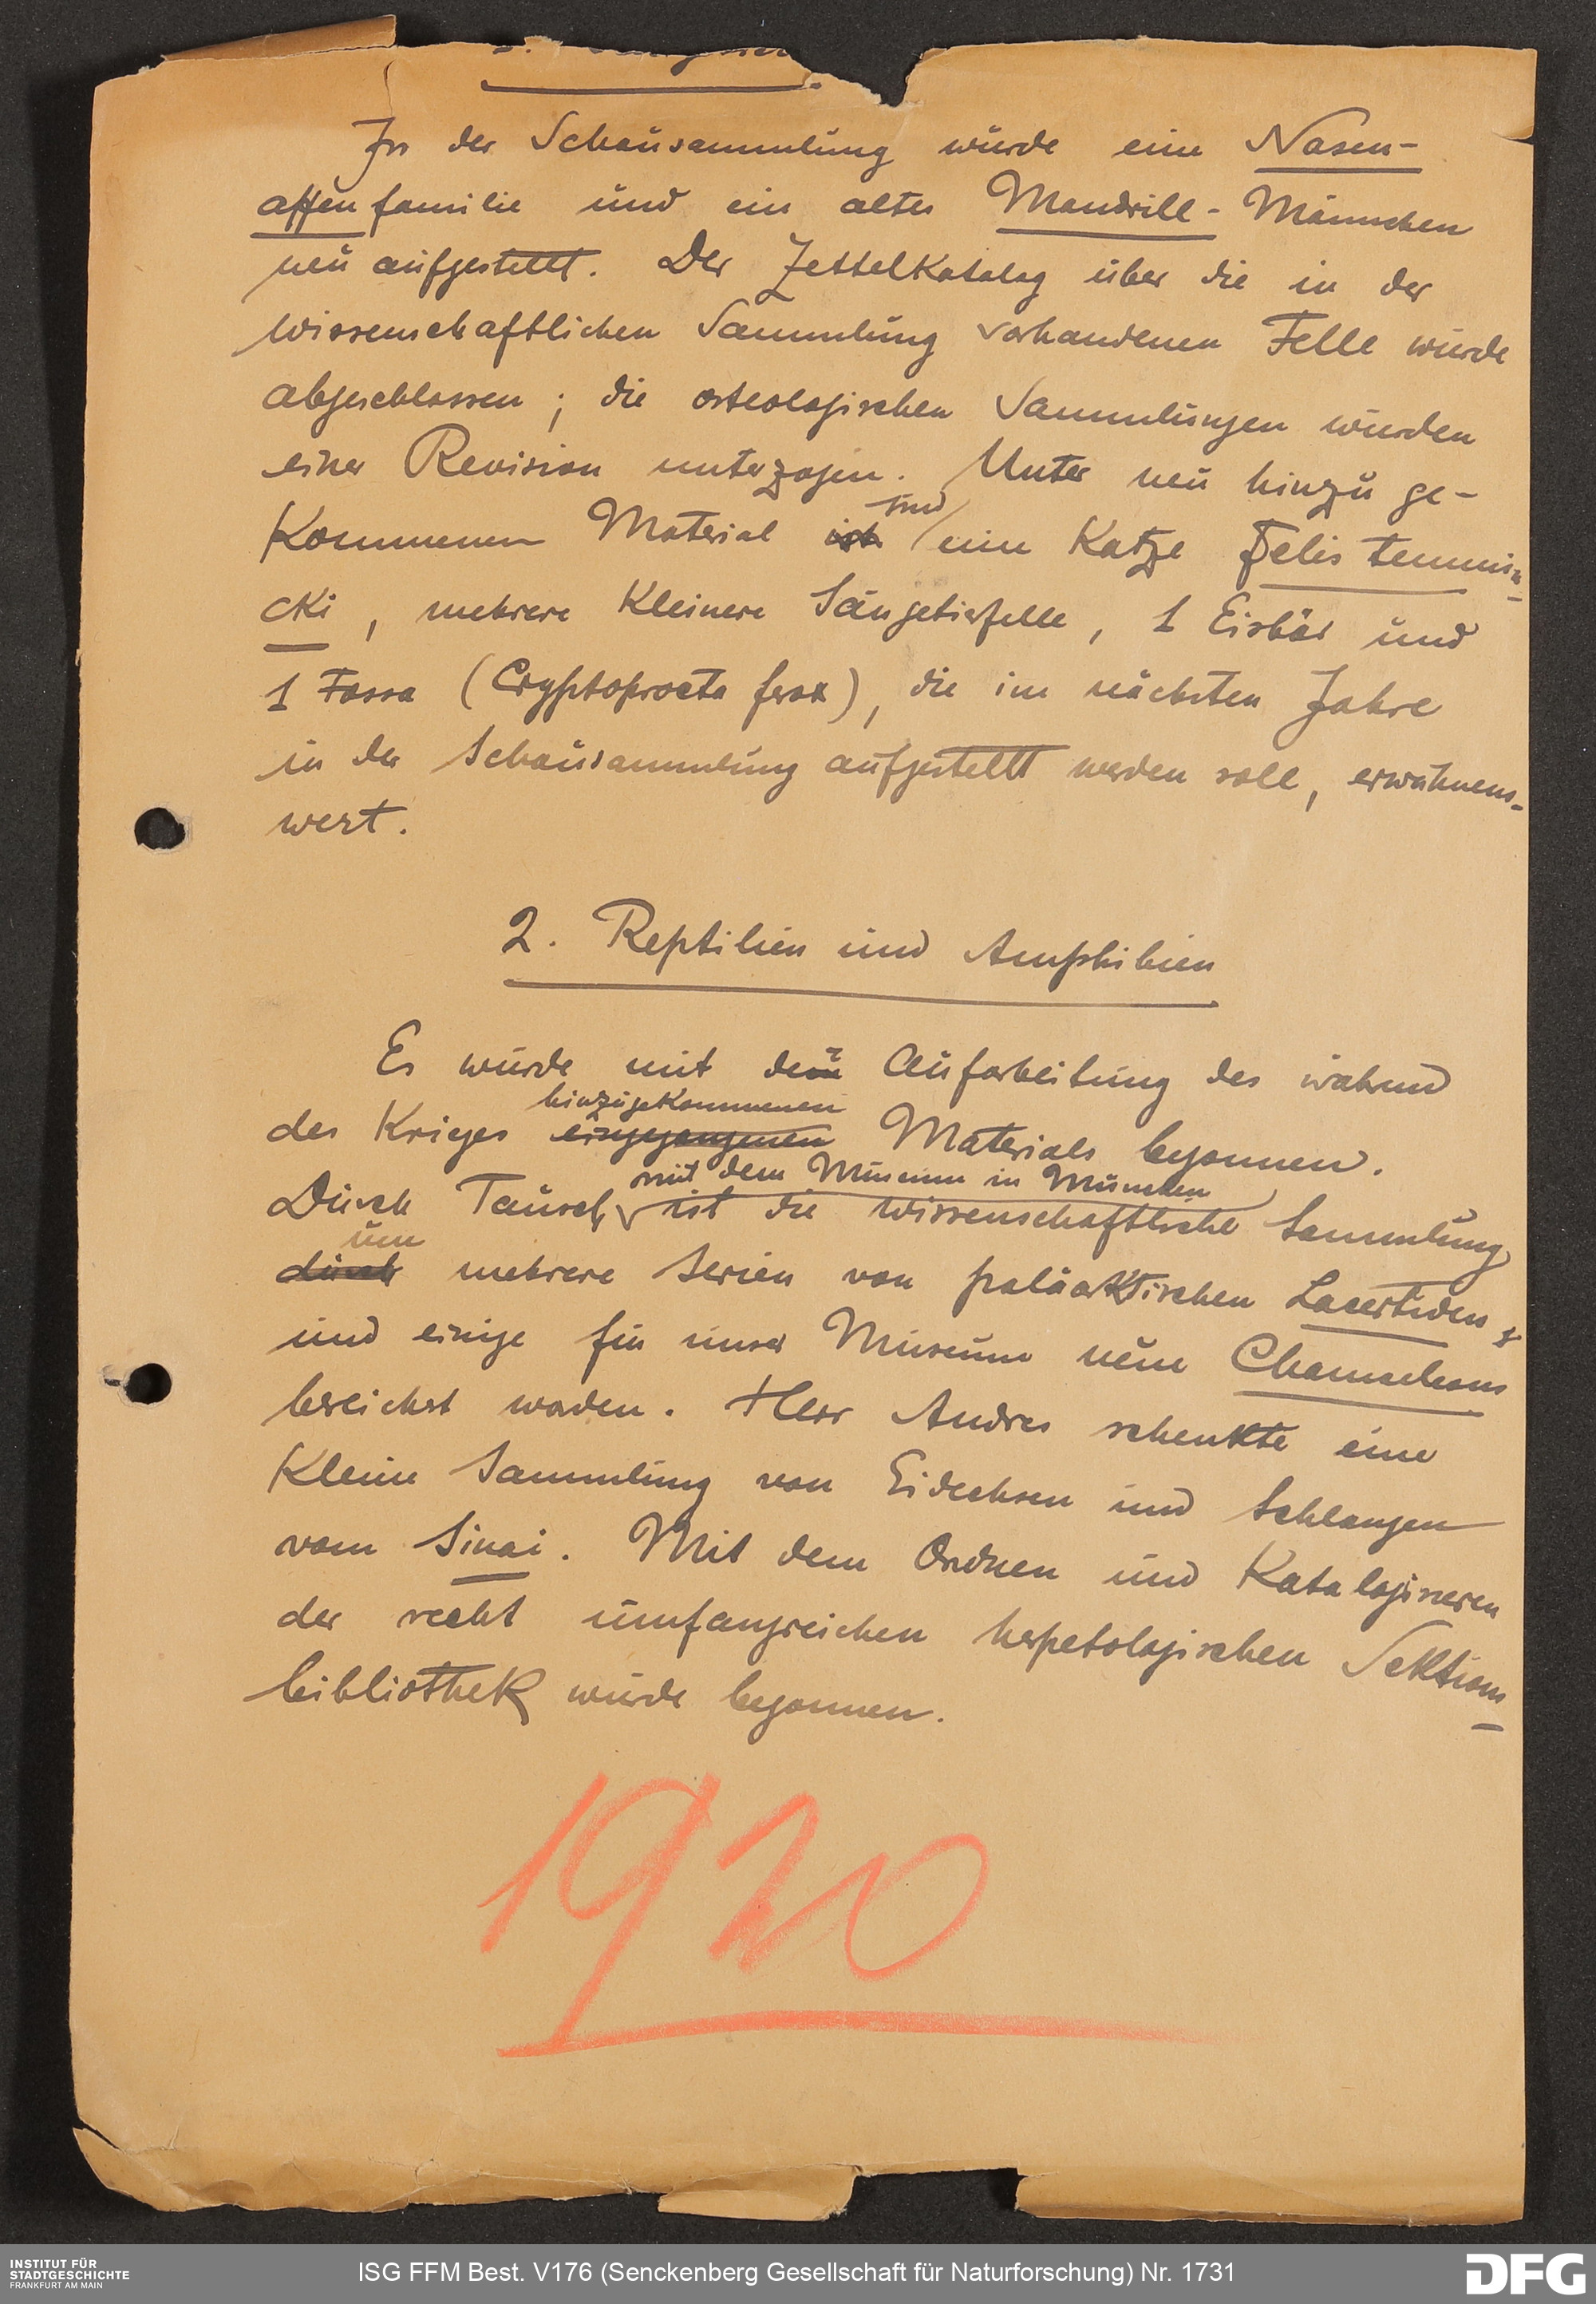 In der Schausammlung wurde eine Nasen-
affenfamilie und ein altes Mandrill-Männchen
neu aufgestellt. Der Zettelkatalog über die in der
wissenschaftlichen Sammlung vorhandenen Felle wurde
abgeschlossen; die osteologischen Sammlungen wurden
einer Revision unterzogen. Unter neu hinzu ge-
sind
kommenen Material ist eine Katze Felis temmin-
cki, mehrere kleinere Säugetierfelle, 1 Eisbär und
1 Fossa (Cryptoprocta ferox), die im nächsten Jahre
in der Schausammlung aufgestellt werden soll, erwähnens-
wert.
2. Reptilien und Amphibien
Es wurde mit der Aufarbeitung des während
hinzugekommenen
des Krieges eingegangenen Materials begonnen.
mit dem Museum in München
Durch Tausch ist die wissenschaftliche Sammlung
um
durch mehrere Serien von paläarktischen Lacertiden
und einige für unser Museum neue Chamaeleons
bereichert worden. Herr Andres schenkte eine
kleine Sammlung von Eidechsen und Schlangen
vom Sinai. Mit dem Ordnen und Katalogisieren
der recht umfangreichen herpetologischen Sektions-
bibliothek wurde begonnen.
1920
INSTITUT FÜR
STADTGESCHICHTE
FRANKFURT AM MAIN
ISG FFM Best. V176 (Senckenberg Gesellschaft für Naturforschung) Nr. 1731
DFG